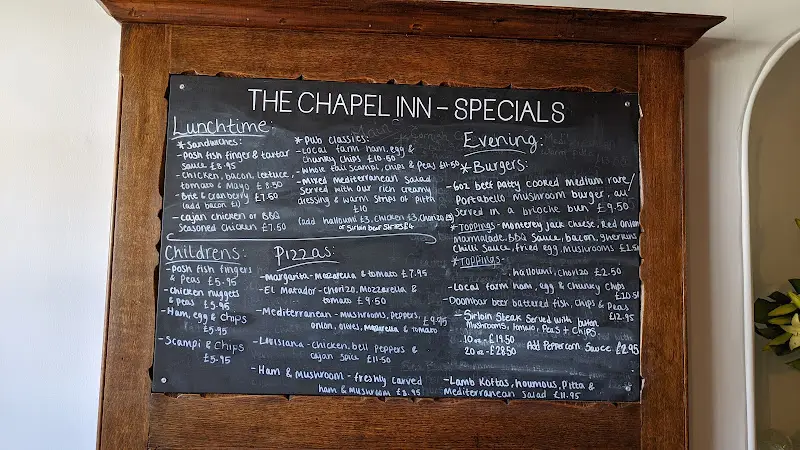 THE CHAPEL INN - SPECIALS
Lunchtime:
* Sandwiches:
- Posh fish finger & tartar
sauce £8.95
- Chicken, bacon, lettuce,
tomato & Mayo £8.50
- Brie & cranberry £7.50
(add bacon £1)
- cajan chicken or BBQ
Seasoned Chicken £7.50
* Pub classics:
- Local farm ham, egg &
Chunky Chips £10.50
- Whole tail scampi, chips & Peas £11.50
- Mixed mediterranean salad
Served with our rich creamy
dressing & warm strips of pitta
£10
(add halloumi £3, Chicken £3, Chorizo £3
or Sirloin beef Strips £4
Childrens:
- Posh fish fingers
& Peas £5.95
- Chicken nuggets
& Peas £5.95
- Ham, egg & Chips
£5.95
- Scampi & Chips
£5.95
Pizzas:
- Margarita - Mozarella & tomato £7.95
- El Matador - Chorizo, Mozzarella &
tomato £9.50
- Mediterranean - Mushrooms, Peppers,
onion, olives, Mozarella & tomato £9.95
- Louisiana - chicken, bell peppers &
cajan spice £11.50
- Ham & Mushroom - freshly carved
ham & mushroom £8.95
Evening:
* Burgers:
- 6oz beef patty cooked medium rare/
Portabello mushroom burger, all
Served in a brioche bun £9.50
* Toppings - Monterey Jack Cheese, Red Onion
marmalade, BBQ Sauce, bacon, gherkins
Chilli Sauce, fried egg, Mushrooms £1.50
* Toppings -
halloumi, chorizo £2.50
- Local farm ham, egg & Chunky Chips
£10.50
- Doombar beer battered fish, Chips & Peas
£12.95
- Sirloin Steak Served with
Mushrooms, tomato, Peas & Chips
10oz - £19.50
20oz - £28.50
Add Peppercorn Sauce £2.95
- Lamb Koftas, houmous, Pitta &
Mediterranean Salad £11.95